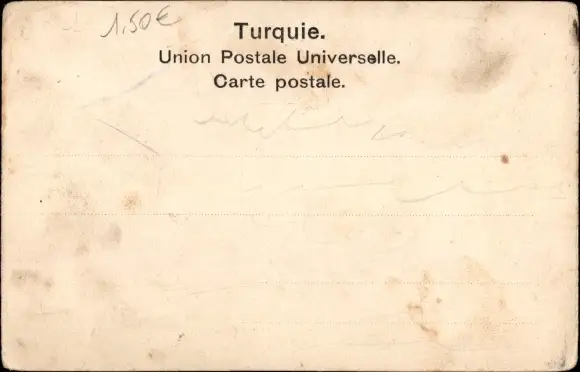 1.50€
Turquie.
Union Postale Universelle.
Carte postale.